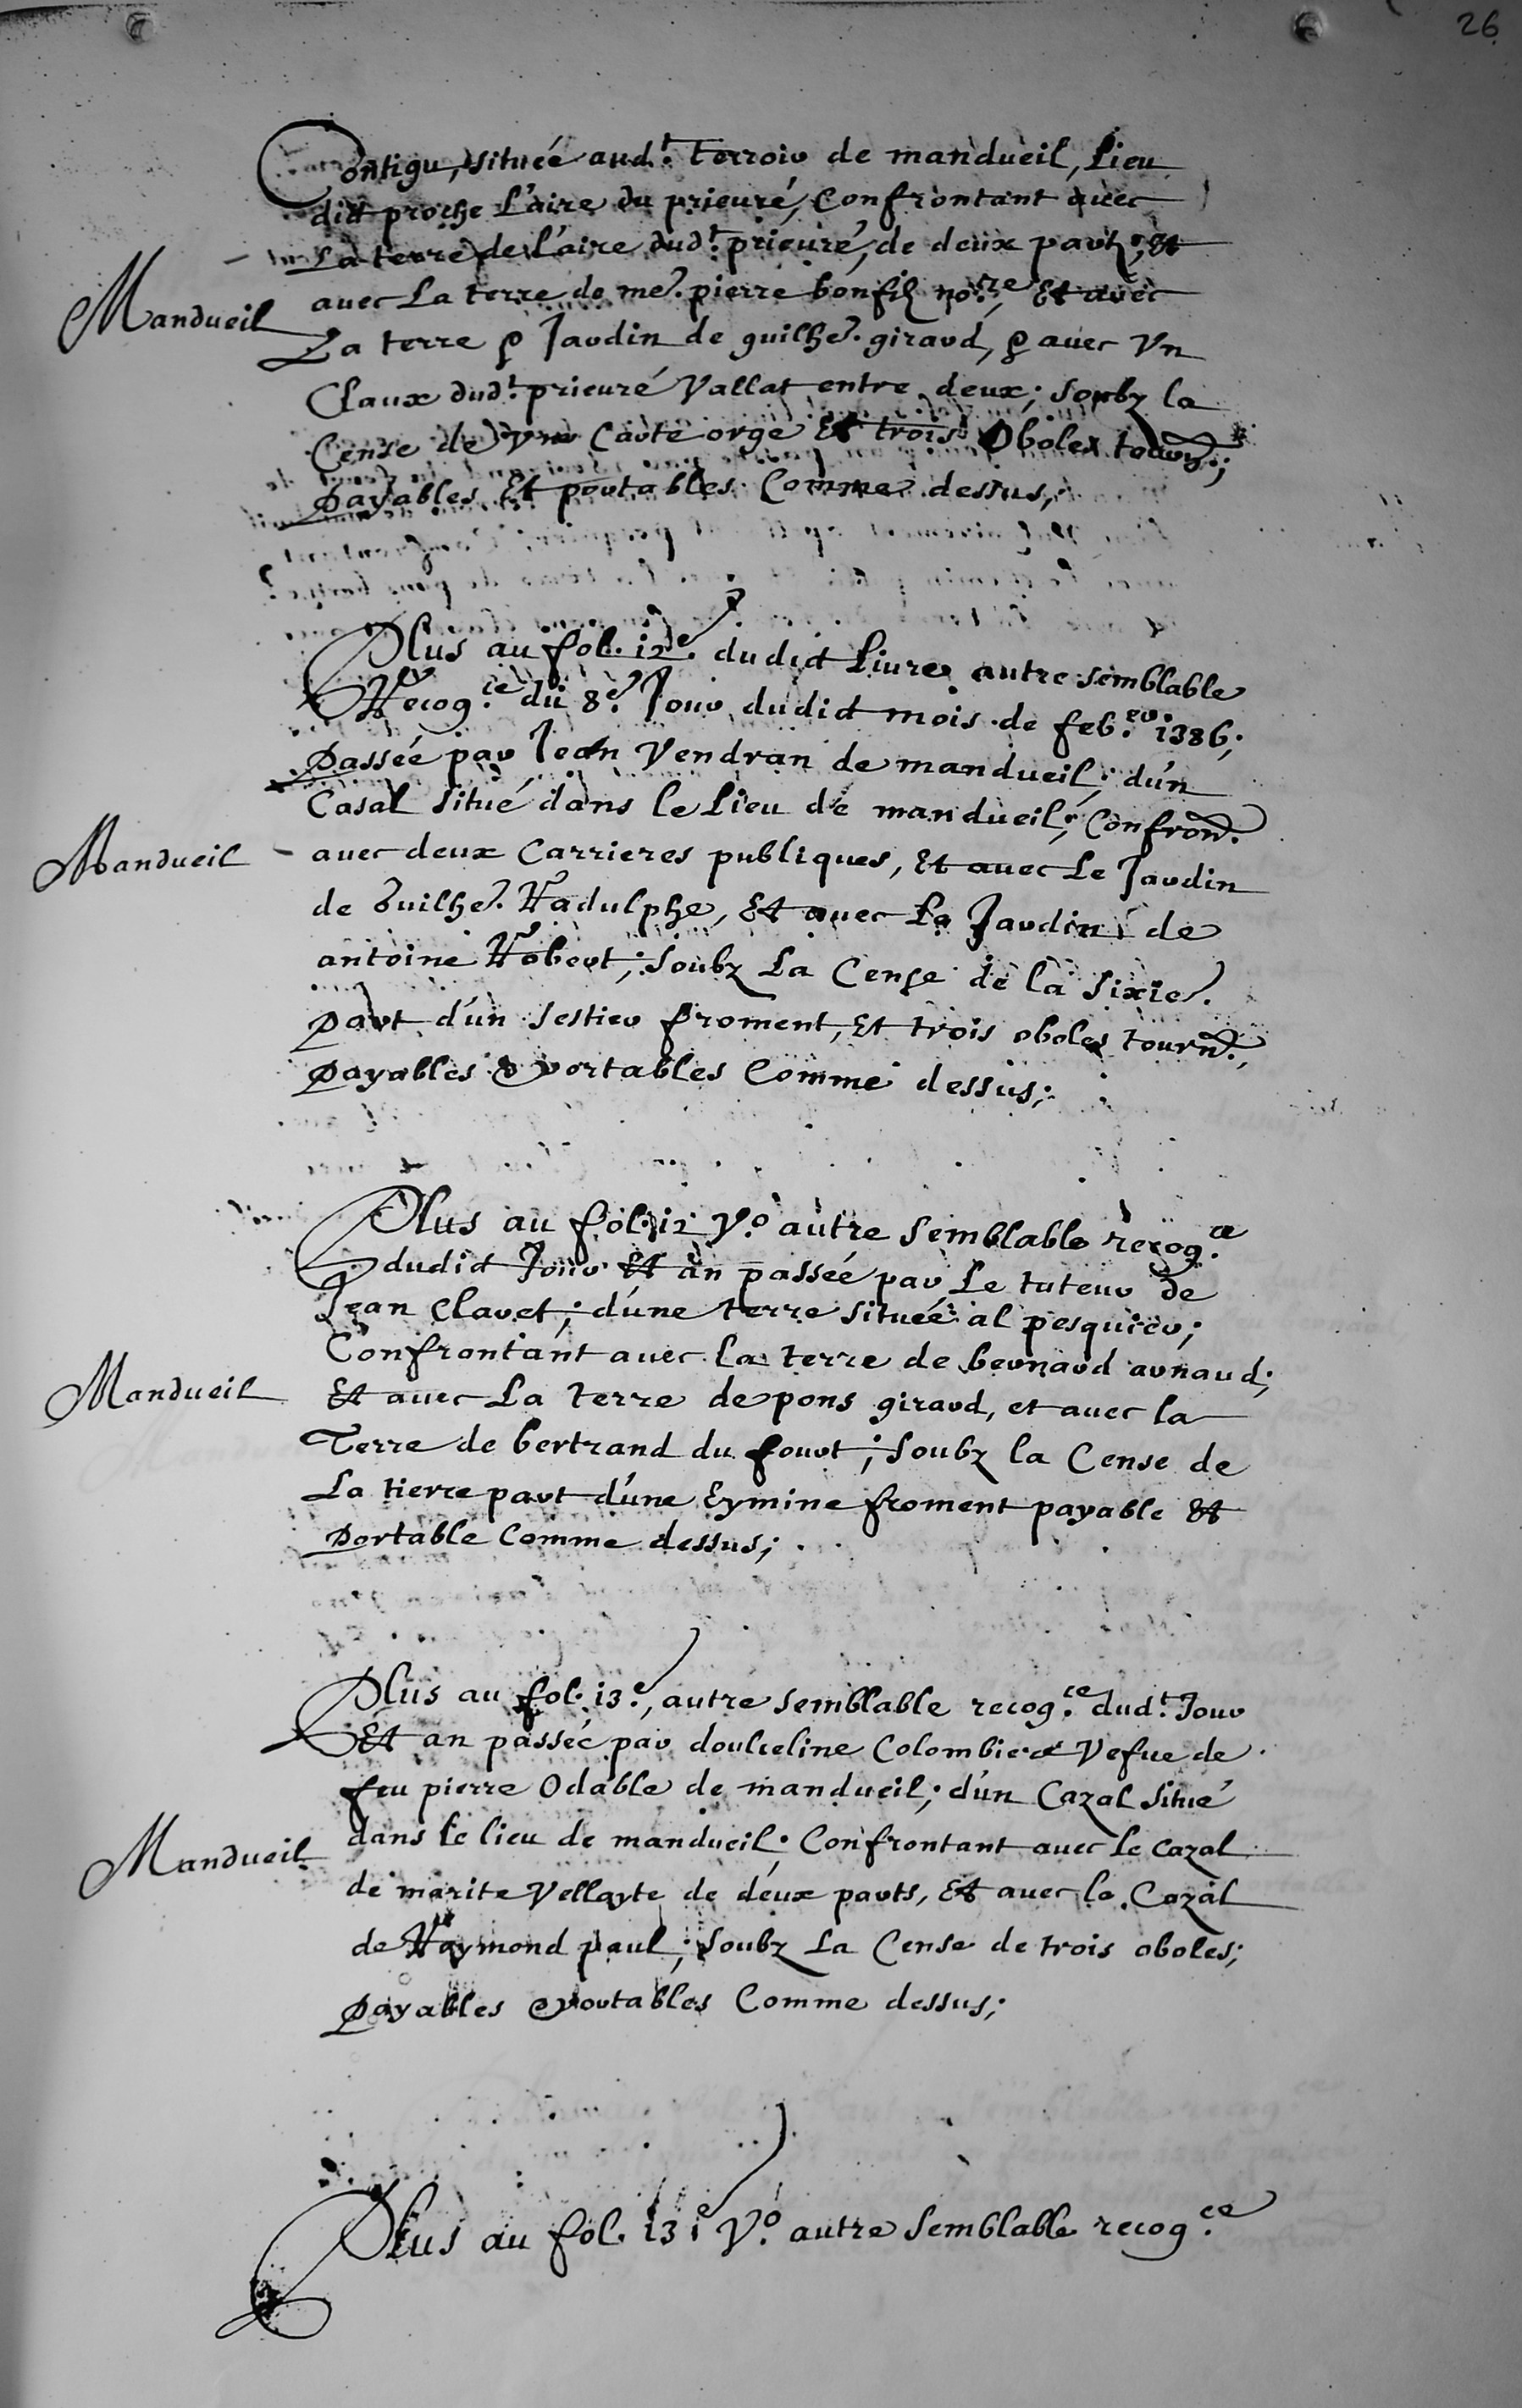 26
Contigu, située aud.t terroir de mandueil, Lieu
dict proche L'aire du prieuré, Confrontant avec
La terre de L'aire dud.t prieuré, de deux partz, Et
Mandueil
avec La terre de me. pierre bonfilz no.re Et avec
La terre & Jardin de guilhe. giraud, & avec Vn
Claux dud.t prieuré Vallat entre deux; soubz la
Cense de Vne Carte orge Et trois Oboles tourn.;
payables Et portables Comme dessus;
Plus au fol. 12e. dudict Livre autre semblable
Recog.ce du 8e. Jour dudict mois de feb.er 1386;
Passée par Jean Vendran de mandueil; d'un
Casal situé dans le Lieu de mandueil; Confron.
Mandueil
avec deux Carrieres publiques, Et avec Le Jardin
de Guilhe. Radulphe, Et avec Le Jardin de
antoine Robert; Soubz La Cense de la sixie.
Part d'un sestier froment, Et trois oboles tourn.;
Payables & portables Comme dessus;
Plus au fol. 12 Vo. autre semblable recog.ce
dudict Jour Et an passée par Le tuteur de
Jean Claret; d'une terre située al pesquier;
Confrontant avec La terre de bernard arnaud;
Mandueil
Et avec La terre de pons giraud, et avec la
Terre de bertrand du fourt; Soubz la Cense de
La tierre part d'une Eymine froment payable Et
Portable Comme dessus;
Plus au fol. 13e., autre semblable recog.ce dud.t Jour
Et an passée par doulceline Colombiere Vefve de
feu pierre Odable de mandueil; d'un Cazal situé
Mandueil
dans le lieu de mandueil; Confrontant avec Le Cazal
de marite Vellayte de deux parts, Et avec le Cazal
de Raymond paul; Soubz La Cense de trois oboles;
Payables & portables Comme dessus;
Plus au fol. 13e Vo. autre semblable recog.ce